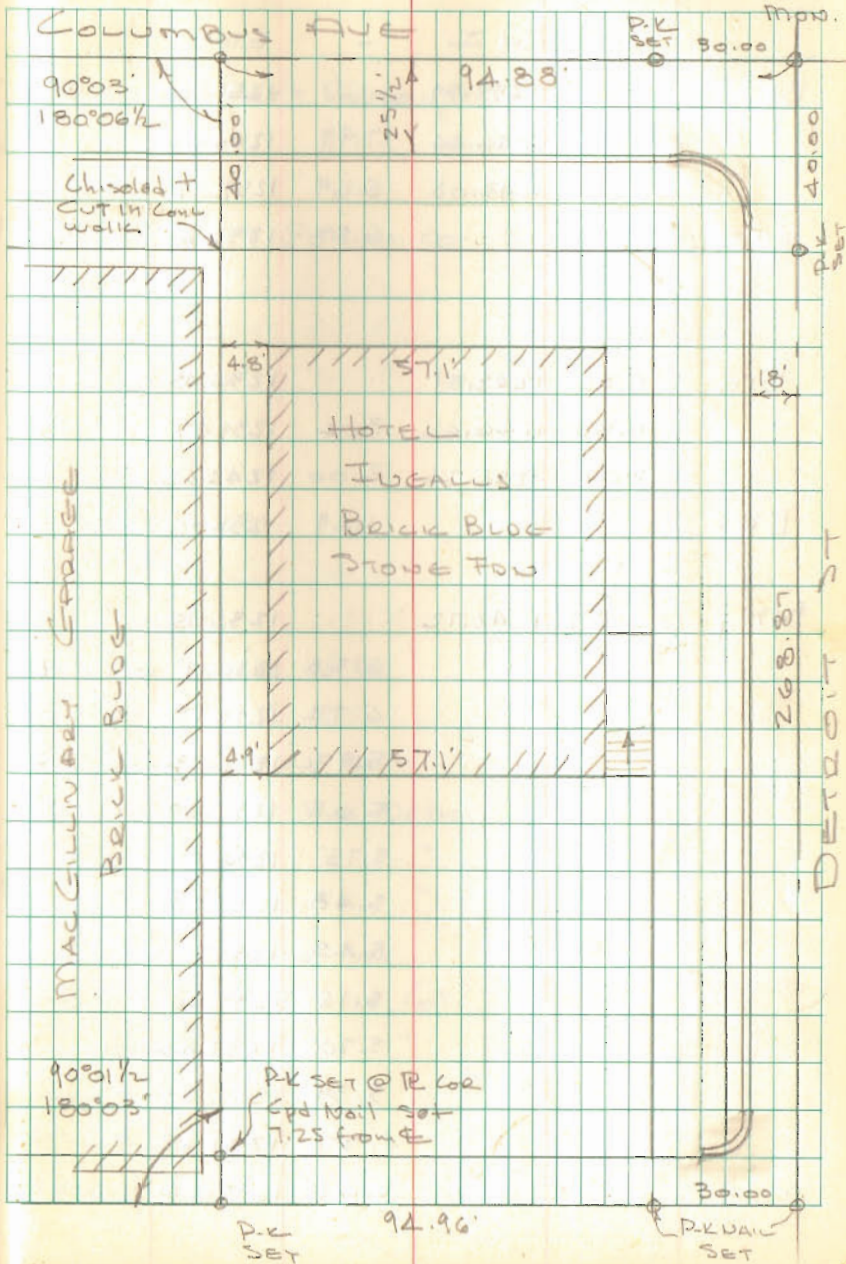 COLUMBUS AVE
MON.
P.K
SET
30.00
94.88'
90°03'
180°06½
25½'
40.00'
40.00
Chisoled +
CUT IN Conc
walk
P.K
SET
4.8'
57.1'
18'
HOTEL
INGALLS
BRICK BLDG
STONE FDN
MAC GILLIVARY GARAGE
BRICK BLDG
268.87
DETROIT ST
4.9'
57.1'
90°01½
180°03'
P-K SET @ PL COR
Nail Set
7.25 from ℄
30.00
P-K
SET
94.96'
P-K NAIL
SET